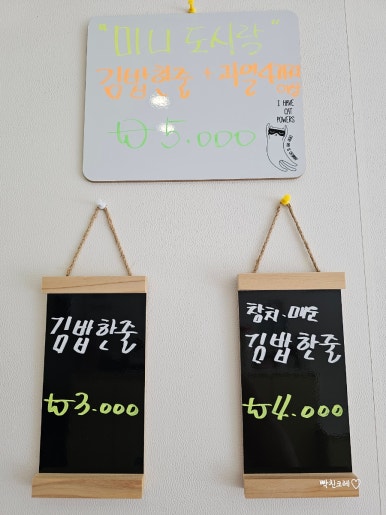 "미니 도시락"
김밥한줄 + 과일4가지
₩5.000
I HAVE
CAT
POWERS
김밥한줄
₩3.000
참치、매운
김밥한줄
₩4.000
빡친코레♡